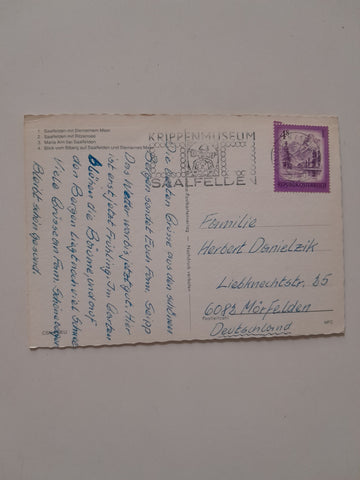 1 Saalfelden mit Steinernem Meer
2 Saalfelden mit Ritzensee
3 Maria Alm bei Saalfelden
4 Blick vom Biberg auf Saalfelden und Steinernes Meer
KRIPPENMUSEUM
SAALFELDEN
4 S
REPUBLIK ÖSTERREICH
Die besten Grüße aus den schönen
Bergen sendet Euch Fam. Seipp
Das Wetter war bis jetzt gut. Hier
ist erst jetzt Frühling. Im Garten
blühen die Bäume, und auf
den Bergen liegt noch viel Schnee.
Viele Grüsse an Fam.
Bleibt schön gesund.
Familie
Herbert Danielzik
Liebknechtstr. 35
6082 Mörfelden
Deutschland
Postleitzahl